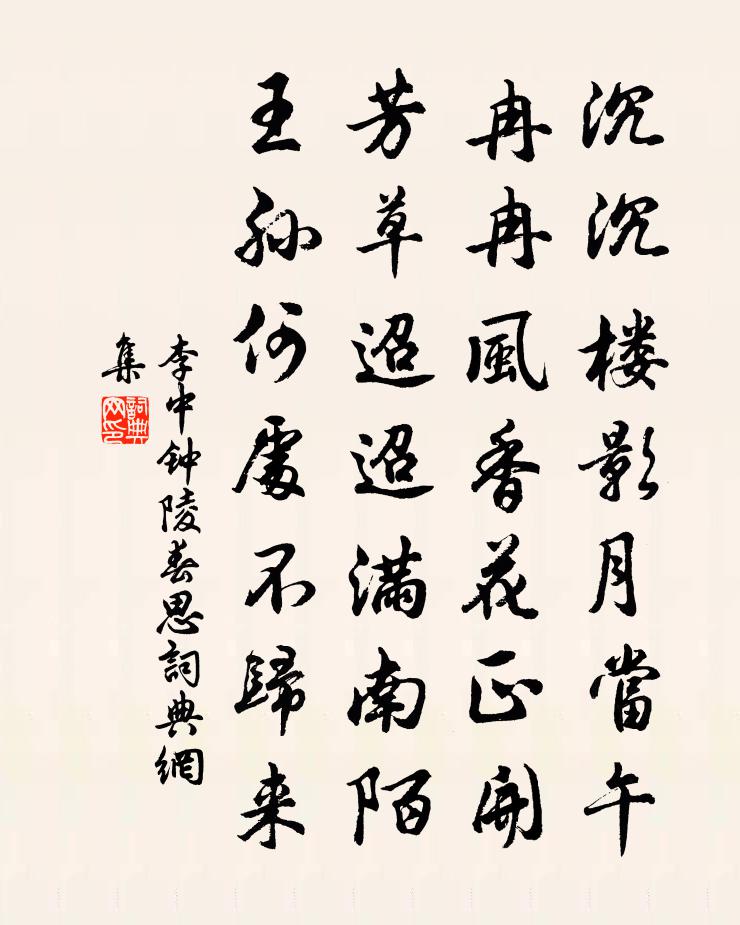 沉沉楼影月當午
冉冉風香花正開
芳草迢迢滿南陌
王孫何處不歸来
李中钟陵春思詞典網
集
詞典
网印